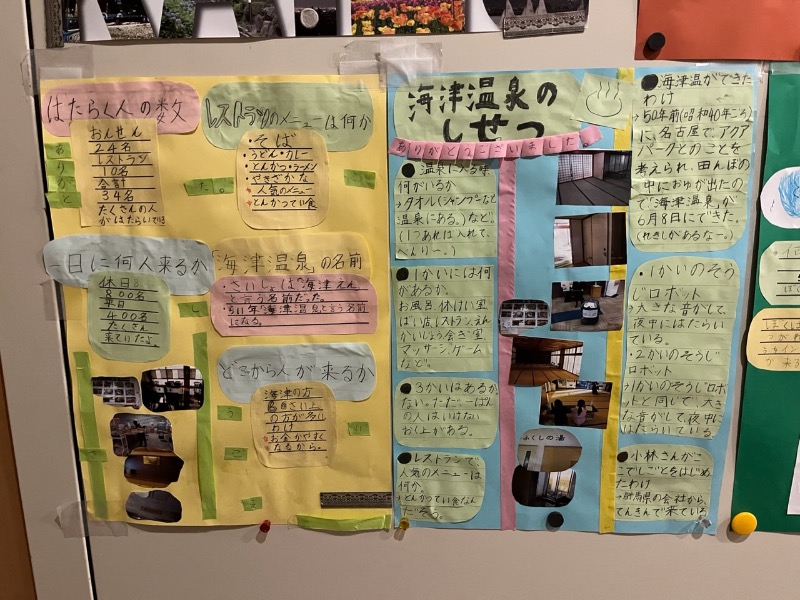 はたらく人の数
おんせん
24名
レストラン
10名
合計
34名
たくさんの人
がはたらいている
ありがと
レストランのメニューは何か
・そば
・うどん・カレー
・とんかつ・ラーメン
・やきざかな
人気のメニュー
とんかつてい食
一日に何人来るか
休日
800名
平日
400名
たくさん
来ていたよ。
「海津温泉」の名前
・さいしょは「海津えん
と言う名前だった。
「海津温泉」と言う名前
になる。
どこから人が来るか
海津の方
の方が多い
わけ
お金がやすく
なるから。
海津温泉の
しせつ
ありがとうございました。
●温泉に入る時
何がいるか
→タオル(シャンプーなど
温泉にある。)など
(1つあれば入れて、
べんりー。)
●1かいには何
があるか
お風呂、休けい室
ばい店、レストラン、えん
かいじょう、会ぎ室
マッサージ、ゲーム
など。
●3かいはあるか
ない。ただ、一ぱん
の人はいけない
おく上がある。
●レストランで、
人気のメニューは
何か
→とんかつてい食なん
だそう。
ふくしの湯
●海津温がてきた
わけ
→50年前(昭和40年ごろ)
に、名古屋で、アクア
パークとのことを
考えられ、田んぼの
中におゆが出たの
で「海津温泉」が
6月8日にできた。
(れきしがあるなー。)
・1かいのそう
じロボット
→大きな音がして、
夜中にはたらい
ている。
・2かいのそうじ
ロボット
→1かいのそうじロボッ
トと同じで、大き
な音がして夜中に
はたらいている。
●小林さんがこ
こでしごとをはじめ
たわけ
→群馬県の会社から、
てんきんで来ている。